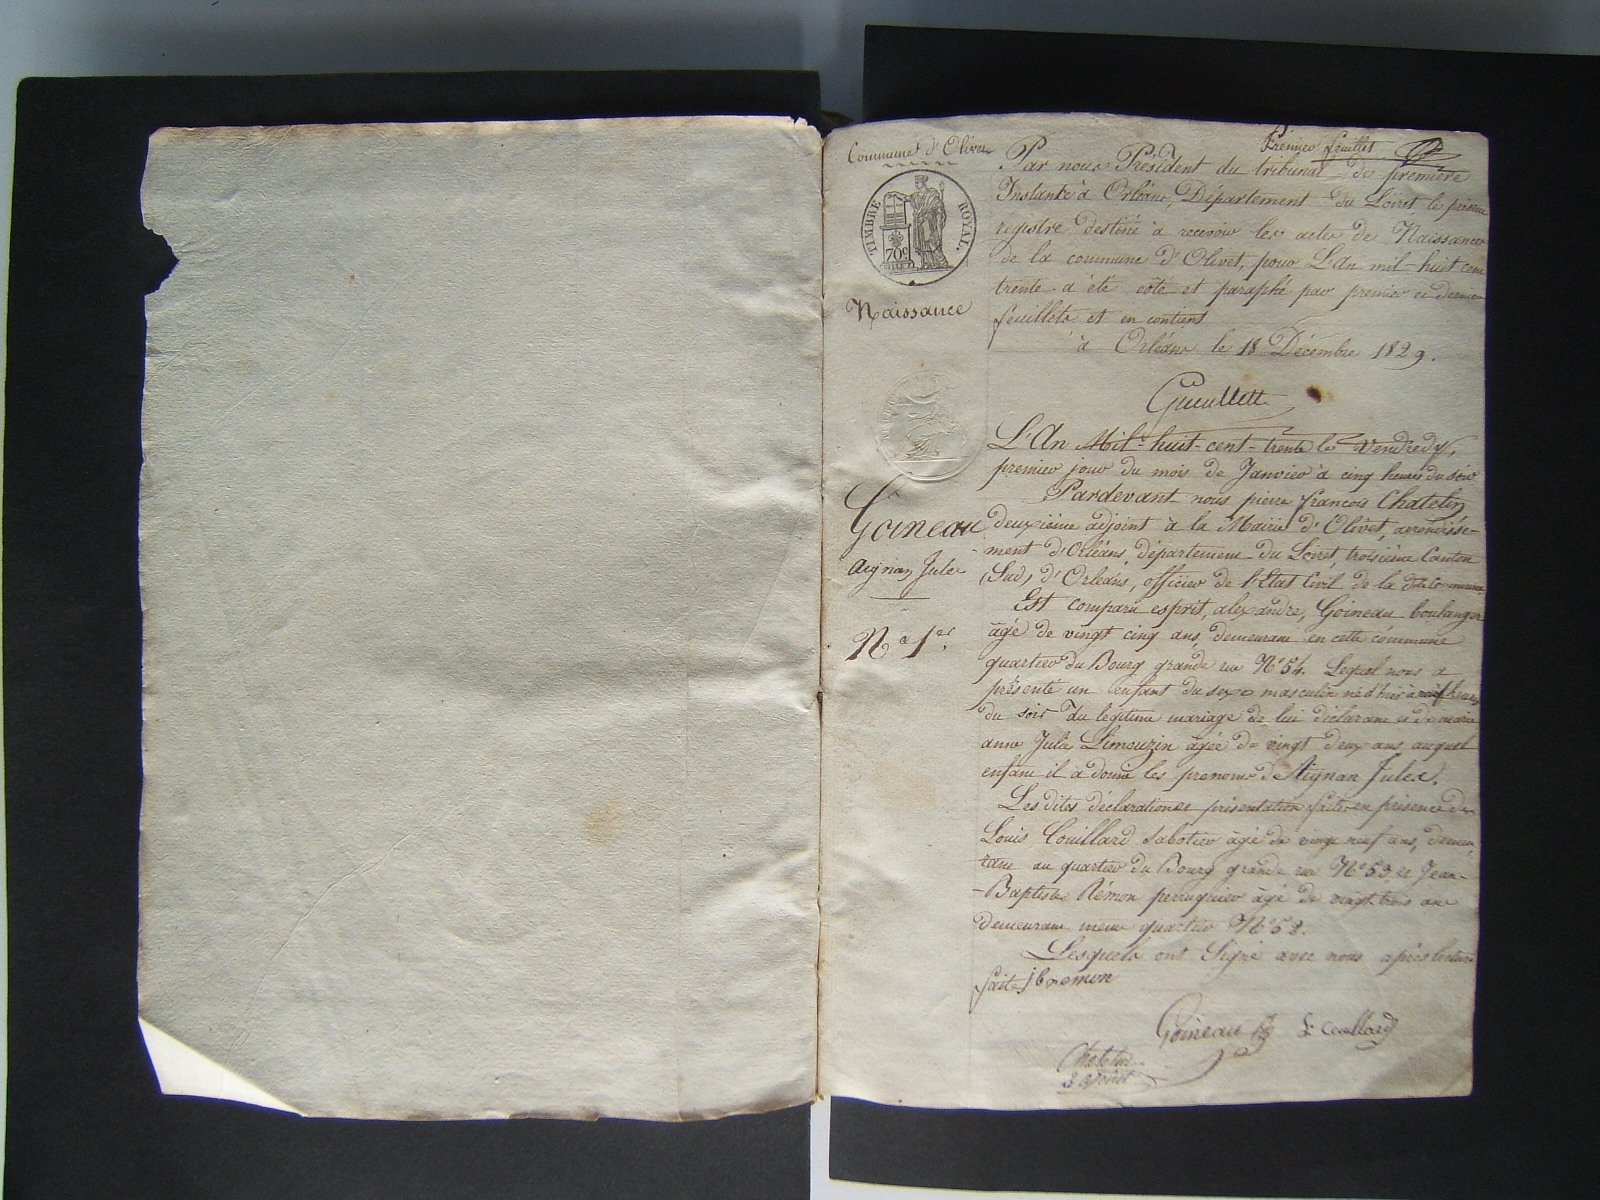 Premier feuillet
Commune d'Olivet
TIMBRE ROYAL.
70c
Naissance
Par nous Président du tribunal de première
Instance à Orléans, Département du Loiret le présent
registre destiné à recevoir les actes de Naissances
de la commune d'Olivet, pour L'an mil-huit cent
trente a été coté et paraphé par premier et dernier
feuillets et en contient
à Orléans le 18 Décembre 1829.
L'An Mil-huit-cent-trente le Vendredy,
premier jour du mois de Janvier à cinq heures du soir
Pardevant nous pierre françois Chatelin
deuxième adjoint à la Mairie d'Olivet, arrondisse-
ment d'Orléans, département du Loiret, troisième Canton
(Sud) d'Orléans, officier de l'Etat Civil de la dite Commune
Goineau
Aignan Jules
N° 1er.
Est comparu esprit, alexandre, Goineau boulanger
âgé de vingt cinq ans, demeurant en cette commune
quartier du Bourg grande rue N° 54. Lequel nous a
présenté un enfant du sexe masculin né d'hier à neuf heures
du soir du légitime mariage de lui déclarant et de marie
anne Julie Limouzin âgée de vingt deux ans, auquel
enfant il a donné les prenoms de Aignan Jules.
Les dites déclaration et présentation faites en présence de
Louis Couillard Sabotier âgé de vingt neuf ans, demeu-
rant au quartier du Bourg grande rue N° 53 et Jean-
-Baptiste Rémon perruquier âgé de vingt trois ans
demeurant meme quartier N° 52.
Lesquels ont Signé avec nous après lecture
faite jb remon
Goineau L. Couillard
Chatelin